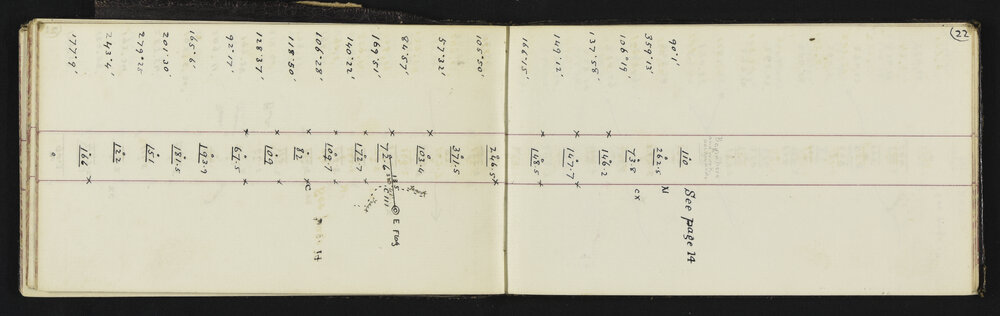 22
90°1' 110 See page 14
359°13' 262.5 N
106°19' 73.8 cx
137°58' x 146.2
149°12' x 147.7 x
166°15' x 148.5 x
105°50' 246.5 x
57°32' 371.5
84°57' x 103.4
169°51' x E Flag
140°22' x 172.7 x
106°28' 109.7
119°50' x 82 x C 14
128°37' x 109 x
92°17' x 67.5 x
165°6' 193.9
201°30' 181.5
279°25 151
243°4' 122
177°9' 166 x
o